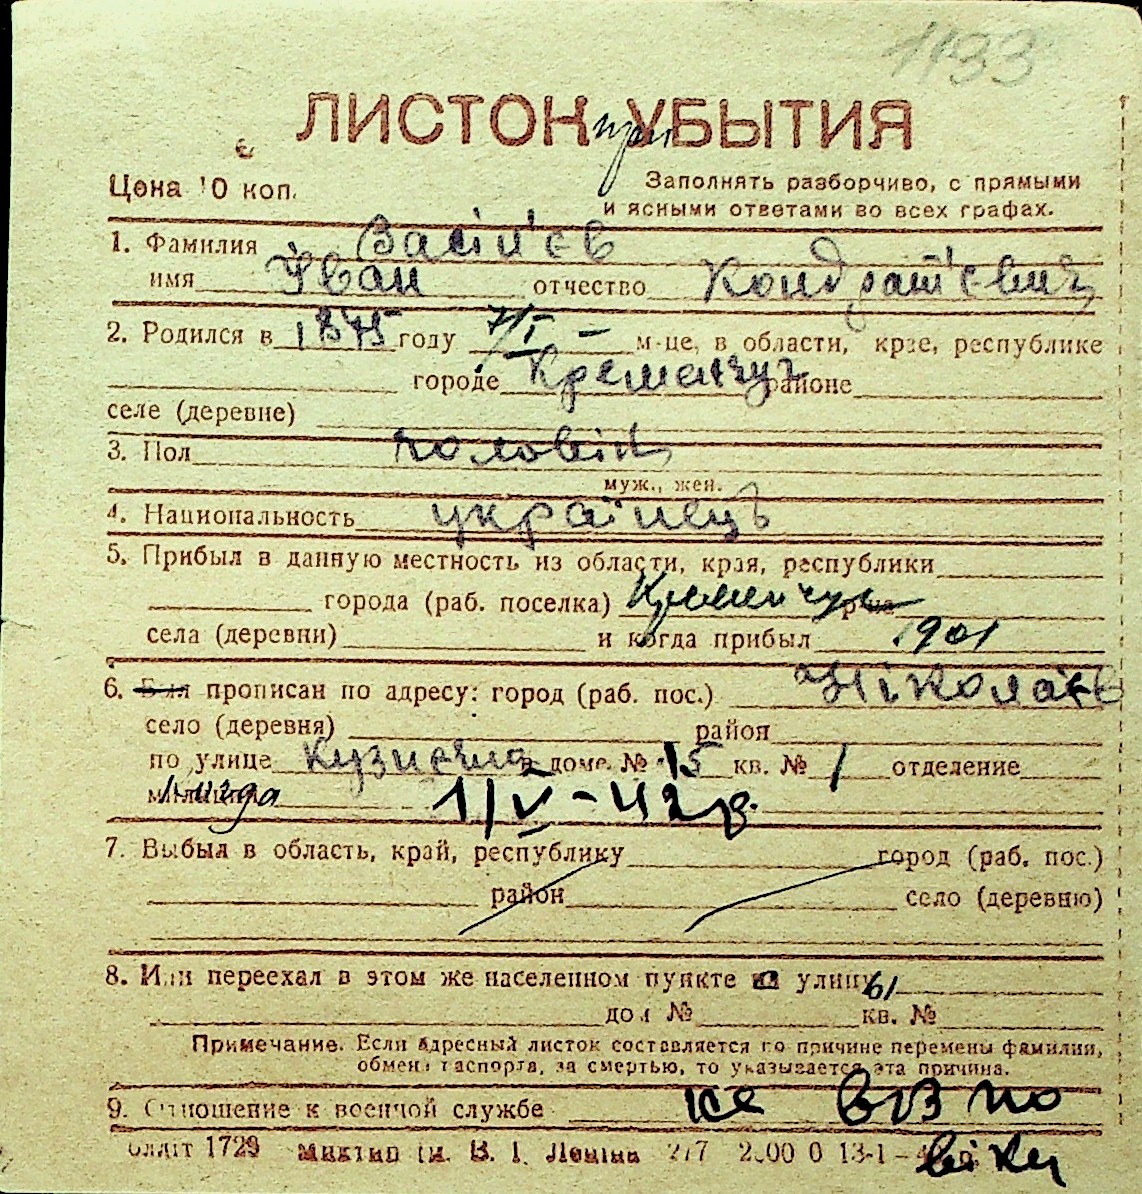 1133
ЛИСТОК при УБЫТИЯ
Цена 10 коп.
Заполнять разборчиво, с прямыми
и ясными ответами во всех графах.
1. Фамилия Васіл'єв
имя Іван отчество Кондрат'євич
2. Родился в 1875 году 7/I – м-це, в области, крае, республике
городе Кременчуг районе
селе (деревне)
3. Пол чоловік
муж., жен.
4. Национальность українець
5. Прибыл в данную местность из области, края, республики
города (раб. поселка) Кременчуг р-на
села (деревни) и когда прибыл 1901
6. Был прописан по адресу: город (раб. пос.) Ніколаєв
село (деревня) район
по улице Кузнечна в доме № 15 кв. № 1 отделение
милиции 1/V-42 р.
7. Выбыл в область, край, республику город (раб. пос.)
район село (деревню)
8. Или переехал в этом же населенном пункте на улицу 61
дом № кв. №
Примечание. Если адресный листок составляется по причине перемены фамилии,
обмена паспорта, за смертью, то указывается эта причина.
9. Отношение к военной службе не в/з по
віку
Облліт 1729 Миктип ім. В. І. Леніна 277 2000 0 13-1-4